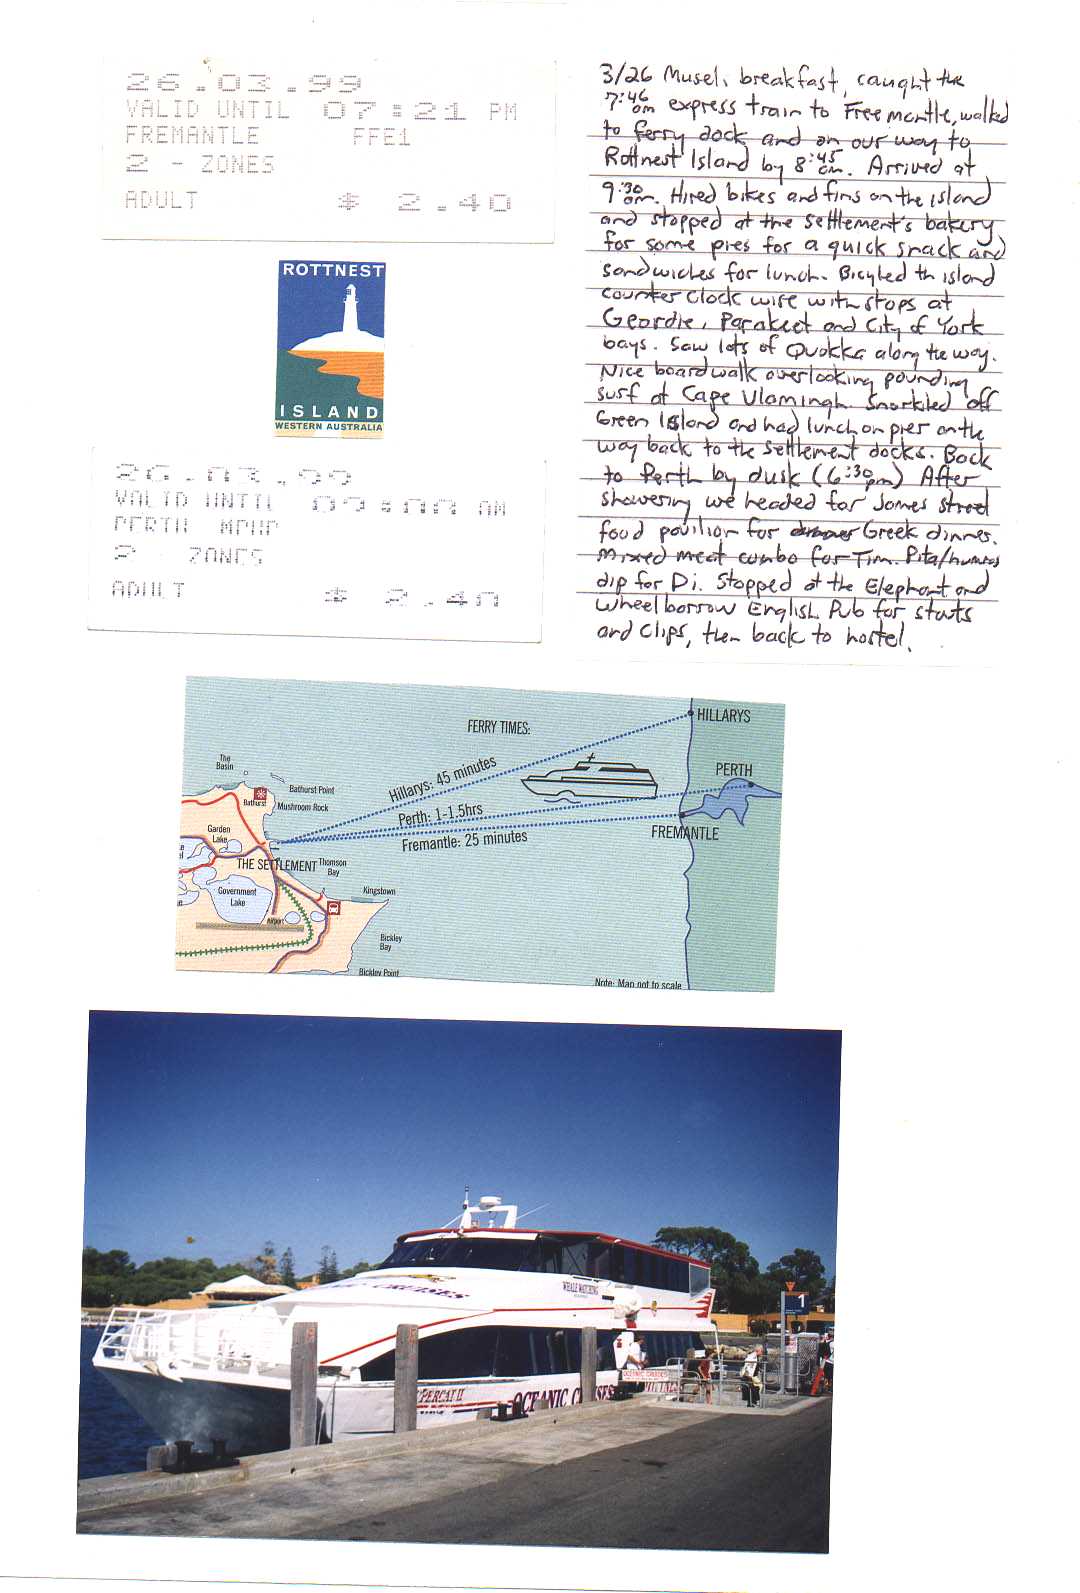 26.03.99
VALID UNTIL 07:21 PM
FREMANTLE FFE1
2 - ZONES
ADULT $ 2.40
ROTTNEST
ISLAND
WESTERN AUSTRALIA
26.03.99
VALID UNTIL 09:00 AM
PERTH MPHP
2 ZONES
ADULT $ 2.40
3/26 Musel, breakfast, caught the
7:46 am express train to Freemantle, walked
to ferry dock and on our way to
Rottnest Island by 8:45 am. Arrived at
9:30 am. Hired bikes and fins on the island
and stopped at the settlement's bakery
for some pies for a quick snack and
sandwiches for lunch. Bicycled th island
counter clock wise with stops at
Geordie, Parakeet and City of York
bays. Saw lots of Quokka along the way.
Nice boardwalk overlooking pounding
surf at Cape Vlamingh. Snorkled off
Green Island and had lunch on pier on the
way back to the settlement docks. Back
to Perth by dusk (6:30 pm) After
showering we headed for James street
food pavilion for Greek dinner.
Mixed meat combo for Tim. Pita/humus
dip for Di. Stopped at the Elephant and
Wheelbarrow English Pub for stouts
and clips, then back to hostel.
FERRY TIMES:
HILLARYS
PERTH
FREMANTLE
Hillarys: 45 minutes
Perth: 1-1.5hrs
Fremantle: 25 minutes
The Basin
Bathurst Point
Bathurst
Mushroom Rock
Garden Lake
THE SETTLEMENT
Thomson Bay
Government Lake
Kingstown
Airport
Bickley Bay
Bickley Point
Note: Map not to scale
CRUISES
WHALE WATCHING
SUPERCAT II
OCEANIC CRUISES
OCEANIC CRUISES
1